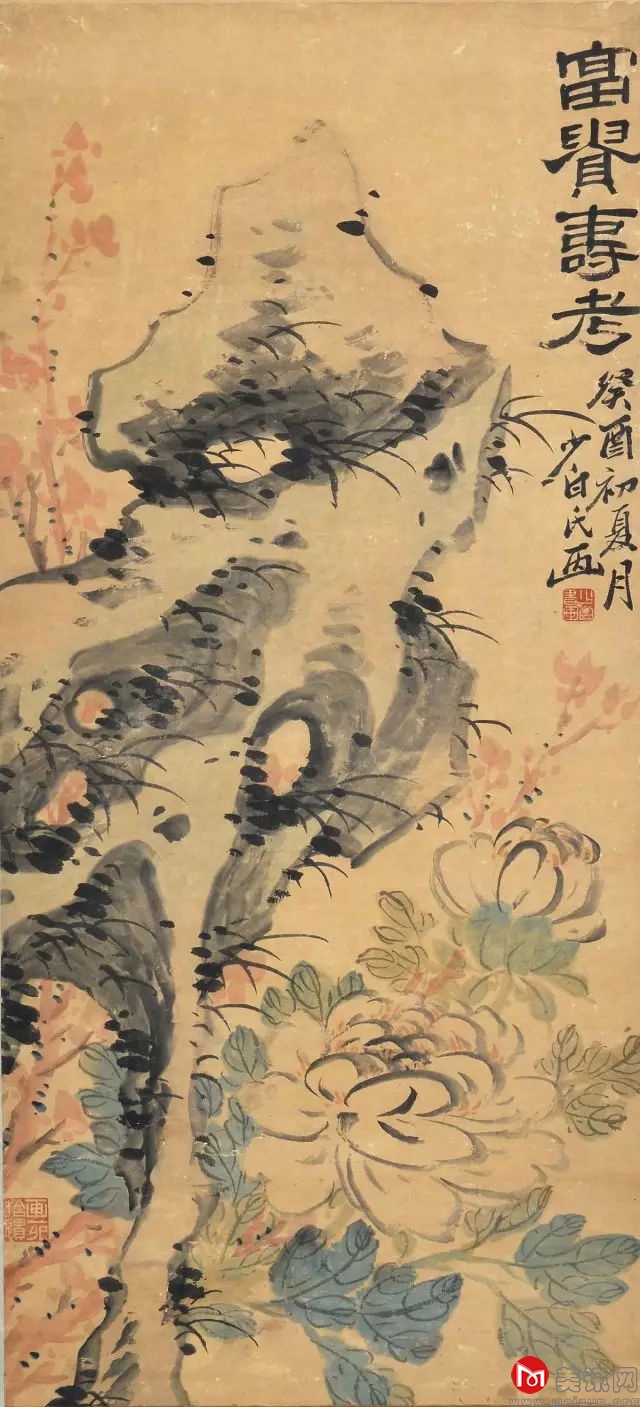 富貴壽考
癸酉初夏月
少白氏畫
美术网